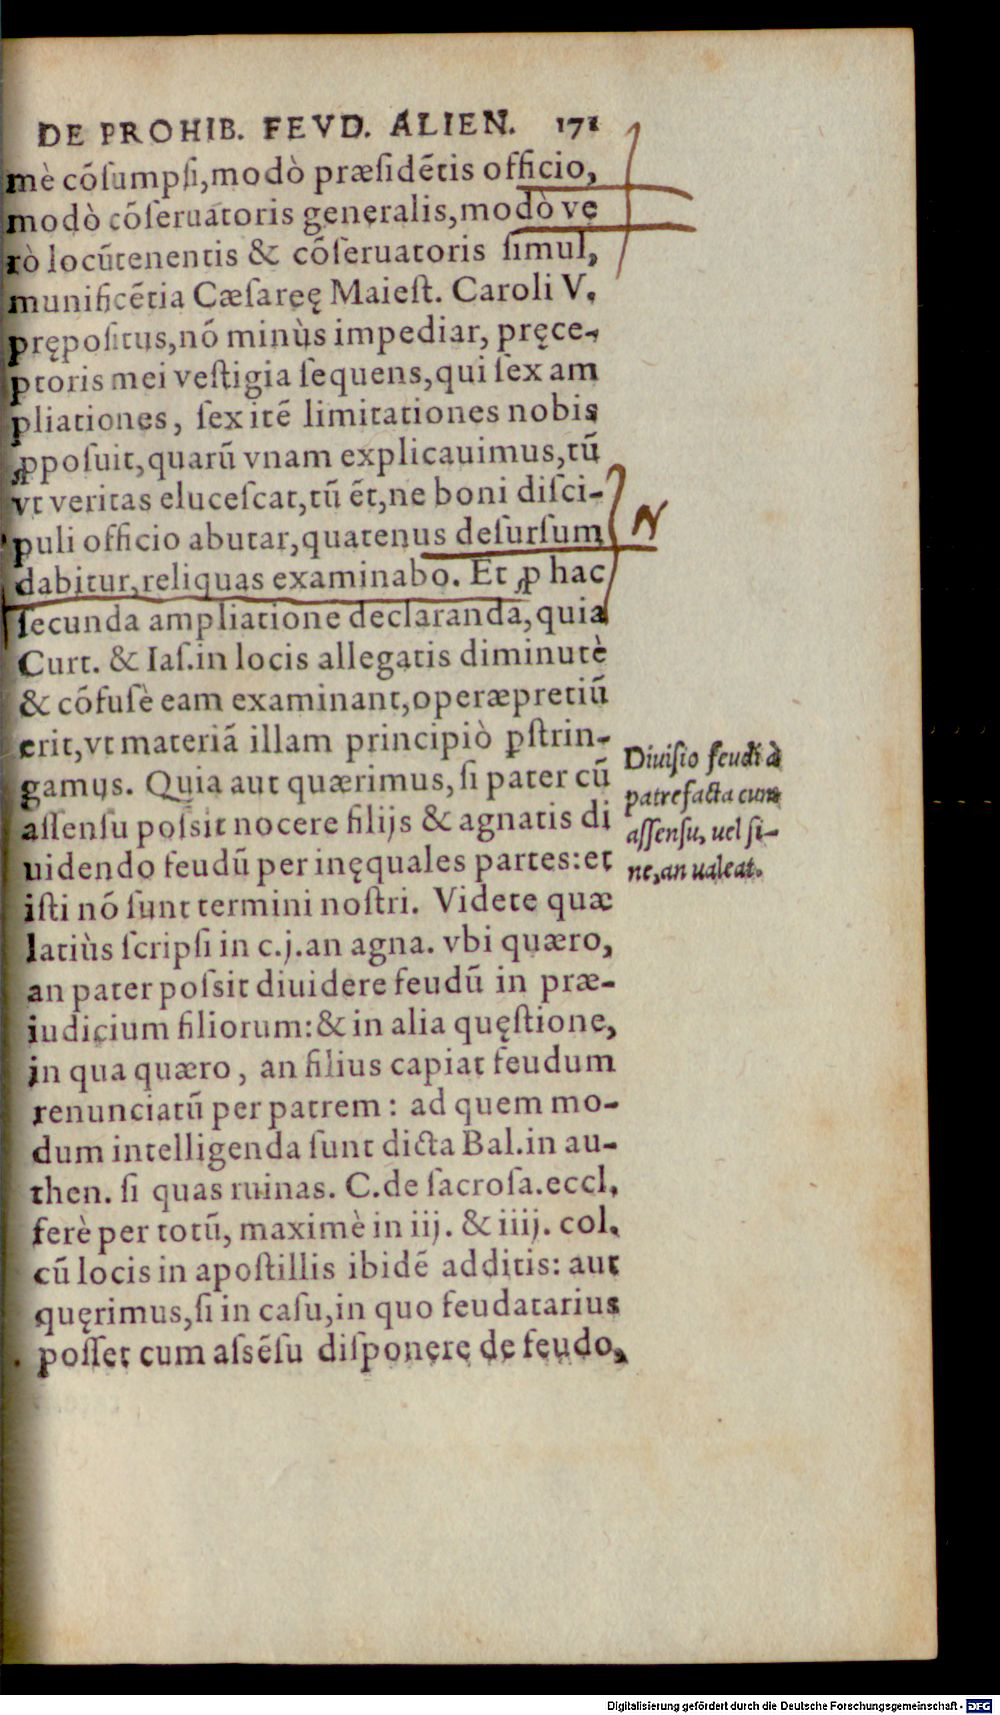 DE PROHIB. FEVD. ALIEN. 171
mè cõſumpſi,modò præſidẽtis officio,
modò cõſeruatoris generalis,modò ve
rò locũtenentis & cõſeruatoris ſimul,
munificẽtia Cæſareę Maieſt. Caroli V.
prępoſitus,nõ minùs impediar, pręce-
ptoris mei veſtigia ſequens,qui ſex am
pliationes, ſex itẽ limitationes nobis
ꝓpoſuit,quarũ vnam explicauimus,tũ
vt veritas eluceſcat,tũ ẽt,ne boni diſci-
puli officio abutar,quatenus deſurſum
dabitur,reliquas examinabo. Et ꝓ hac
ſecunda ampliatione declaranda,quia
Curt. & Iaſ.in locis allegatis diminutè
& cõfuſè eam examinant,operæpretiũ
erit,vt materiã illam principiò ꝑſtrin-
gamus. Quia aut quærimus,ſi pater cũ
aſſenſu poſsit nocere filijs & agnatis di
uidendo feudũ per inęquales partes:et
iſti nõ ſunt termini noſtri. Videte quæ
latiùs ſcripſi in c.j.an agna. vbi quæro,
an pater poſsit diuidere feudũ in præ-
iudicium filiorum:& in alia quęſtione,
in qua quæro, an filius capiat feudum
renunciatũ per patrem: ad quem mo-
dum intelligenda ſunt dicta Bal.in au-
then. ſi quas ruinas. C.de ſacroſa.eccl.
ferè per totũ, maximè in iij. & iiij. col.
cũ locis in apoſtillis ibidẽ additis: aut
quęrimus,ſi in caſu,in quo feudatarius
poſſet cum aſsẽſu diſponere de feudo,
Diuiſio feudi à
patre facta cum
aſſenſu, uel ſi-
ne,an ualeat.
N
Digitalisierung gefördert durch die Deutsche Forschungsgemeinschaft - DFG